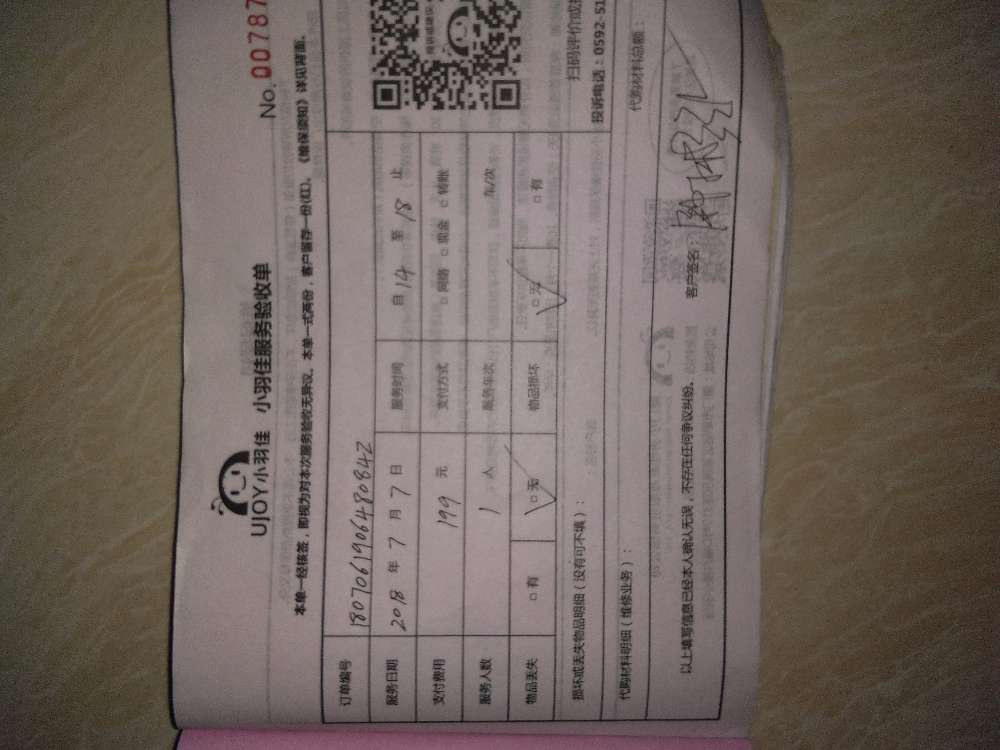 No. 00787
UJOY小羽佳 小羽佳服务验收单
本单一经核签，即视为对本次服务验收无异议。本单一式两份，客户留存一份(红)。《维保须知》详见背面。
订单编号 180706190648084Z
服务日期 2018 年 7 月 7 日 服务时间 自 14 至 18 止
支付费用 199 元 支付方式 □ 网络 □ 现金 □ 转账
服务人数 1 人 服务车次 车/次
物品丢失 □ 有 □ 无 物品损坏 □ 无 □ 有
扫码评价或
投诉电话：0592-51
损坏或丢失物品明细（没有可不填）：
代购材料明细（维修业务）： 代购材料总额：
以上填写信息已经本人确认无误，不存在任何争议纠纷。 客户签名：